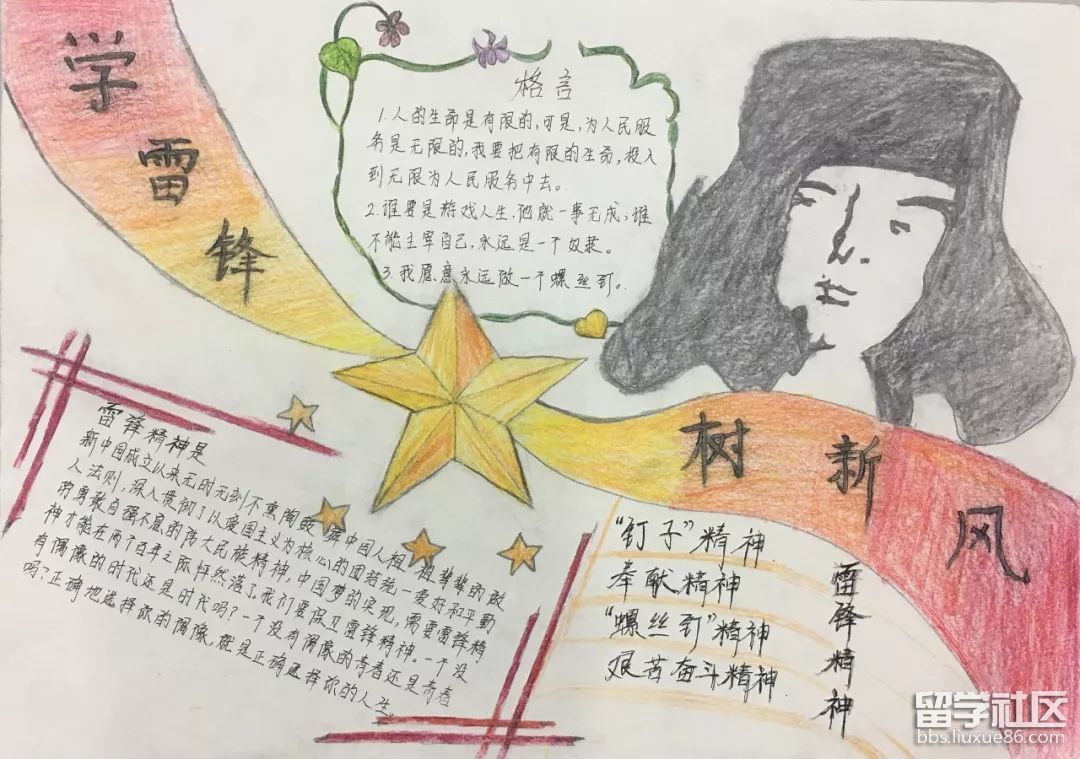 学雷锋
格言
1.人的生命是有限的,可是,为人民服
务是无限的,我要把有限的生命,投入
到无限为人民服务中去。
2.谁要是游戏人生,他就一事无成;谁
不能主宰自己,永远是一个奴隶。
3.我愿意永远做一个螺丝钉。
树新风
雷锋精神是
新中国成立以来无时无刻不熏陶
中国人祖祖辈辈的做
人法则,深入贯彻了以爱国主义为核心的团结统一爱好和平勤
劳勇敢自强不息的伟大民族精神,中国梦的实现,需要雷锋精
神才能在两个百年之际怦然落了,我们要保卫雷锋精神。一个没
有偶像的时代还是时代吗?一个没有偶像的青春还是青春
吗?正确地选择你的偶像,就是正确选择你的人生。
“钉子”精神
奉献精神
“螺丝钉”精神
艰苦奋斗精神
雷锋精神
留学社区
bbs.liuxue86.com